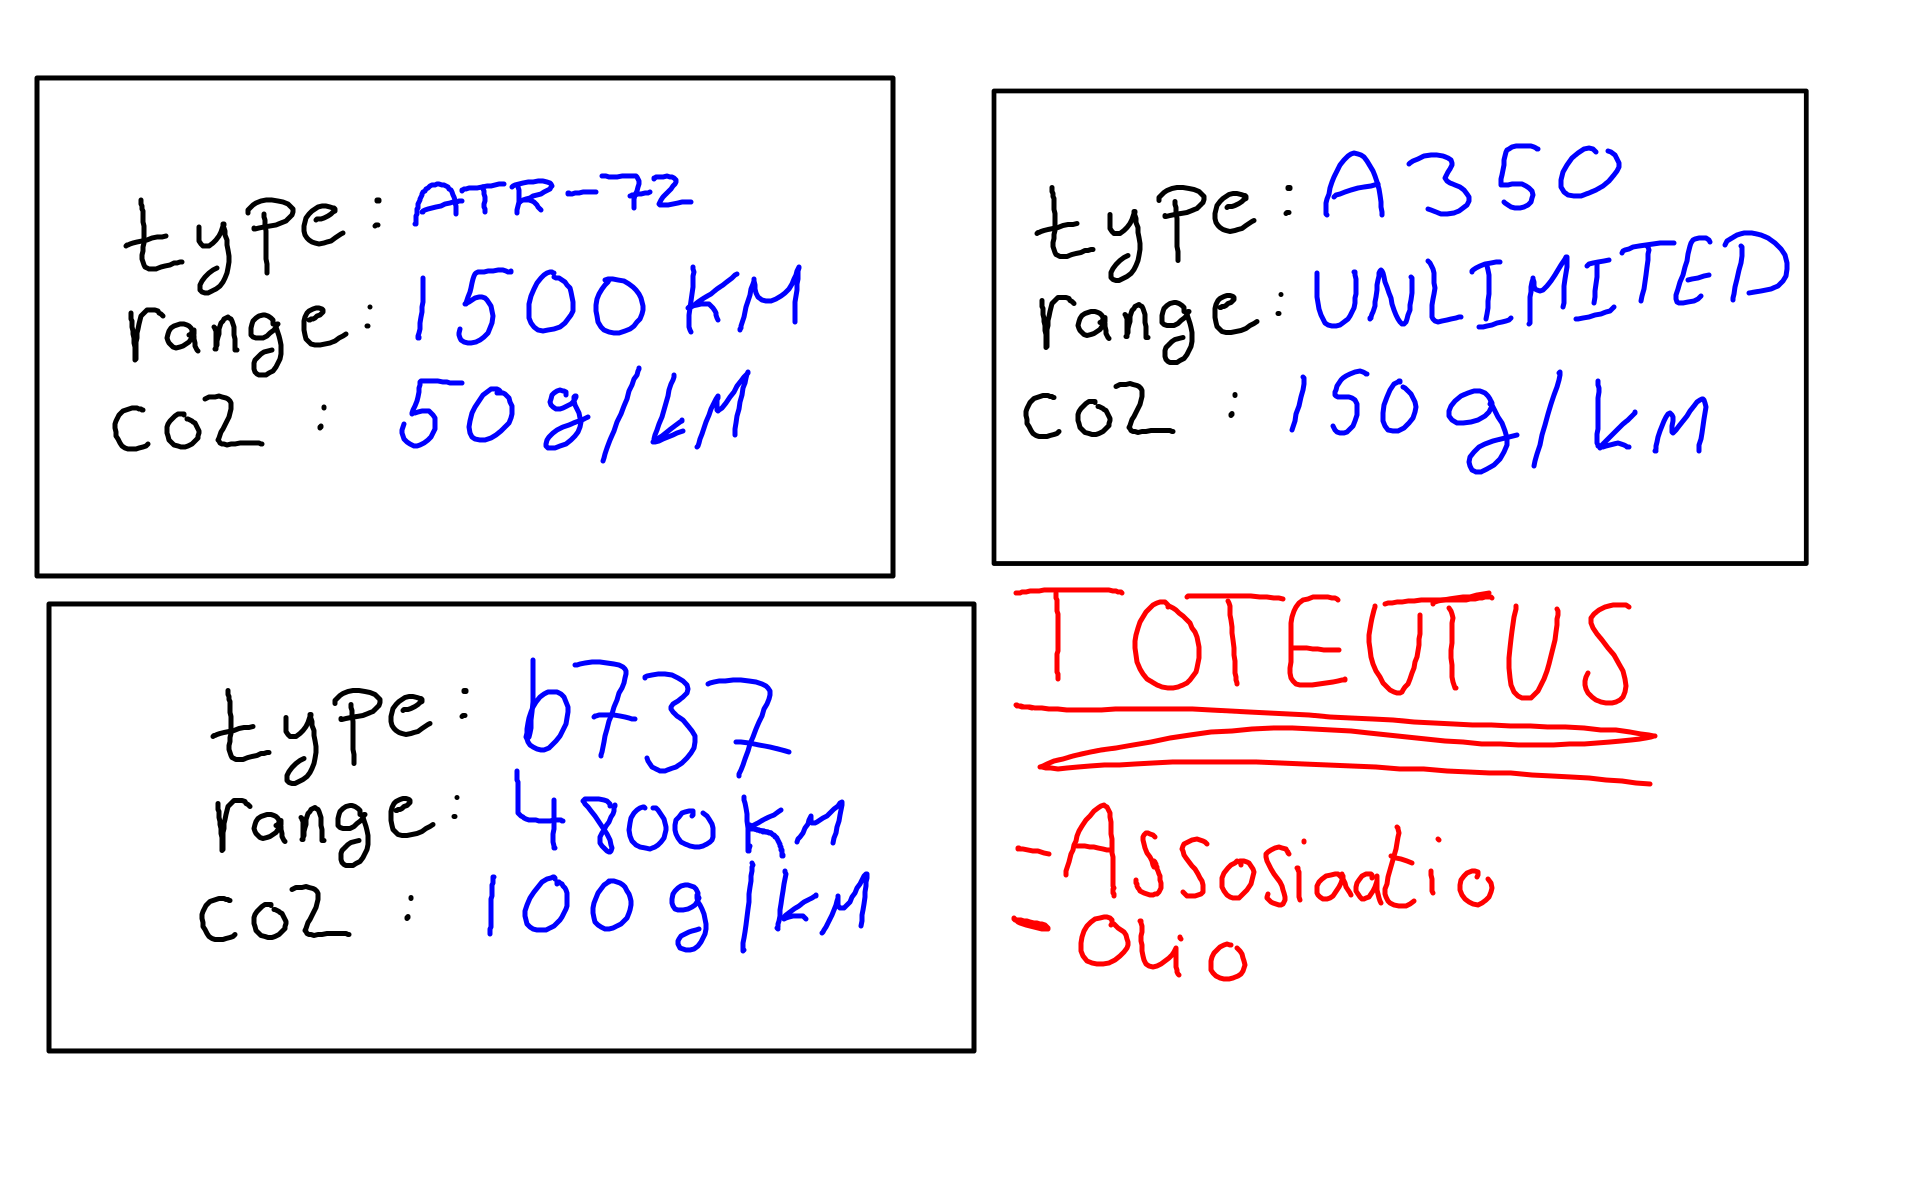 type: ATR-72
range: 1500 KM
co2 : 50 g/kM
type: A350
range: UNLIMITED
co2 : 150 g/kM
type: b737
range: 4800 KM
co2 : 100 g/kM
TOTEUTUS
- Assosiaatio
- Olio